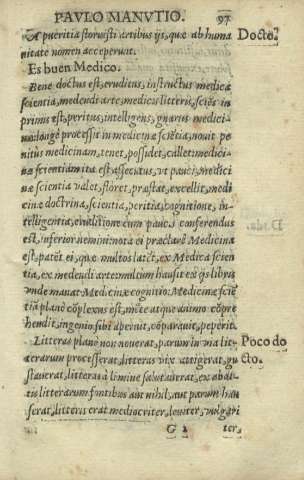 PAVLO MANVTIO. 97
A pueritia floruisti artibus ijs, quæ ab huma Docto.
nitate nomen acceperunt.
Es buen Medico.
Bene doctus est, eruditus, instructus medica
scientia, medendi arte, medicis litteris, sciẽs in
primis est, peritus, intelligens, gnarus medici-
næ: longè processit in medicinæ sciẽtia, nouit pe
nitùs medicinam, tenet, possidet, callet: medici-
næ scientiam ita est assecutus, vt pauci, medici
næ scientia valet, floret, præstat, excellit, medi
cinæ doctrina, scientia, peritia, cognitione, in-
telligentia, eruditione cum pauc.s conferendus
est, inferior nemini: nota ei præclarè Medicina
est, patet ei, quæ multos latet, ex Medica scien
tia, ex medendi arte multum hausit ex ijs libris
vnde manat Medicinæ cognitio: Medicinæ sciẽ
tiã planè cõplexus est, mẽte atque animo cõpre
hendit, ingenio sibi aperuit, cõparauit, peperit.
Litteras planè non nouerat, parum in via lit- Poco do
terarum processerat, litteras vix attigerat, gu cto.
stauerat, litteras à limine salutauerat, ex abdi-
tis litterarum fontibus aut nihil, aut parum hau
serat, litteris erat mediocriter, leuiter, vulgari
G 2 ter,